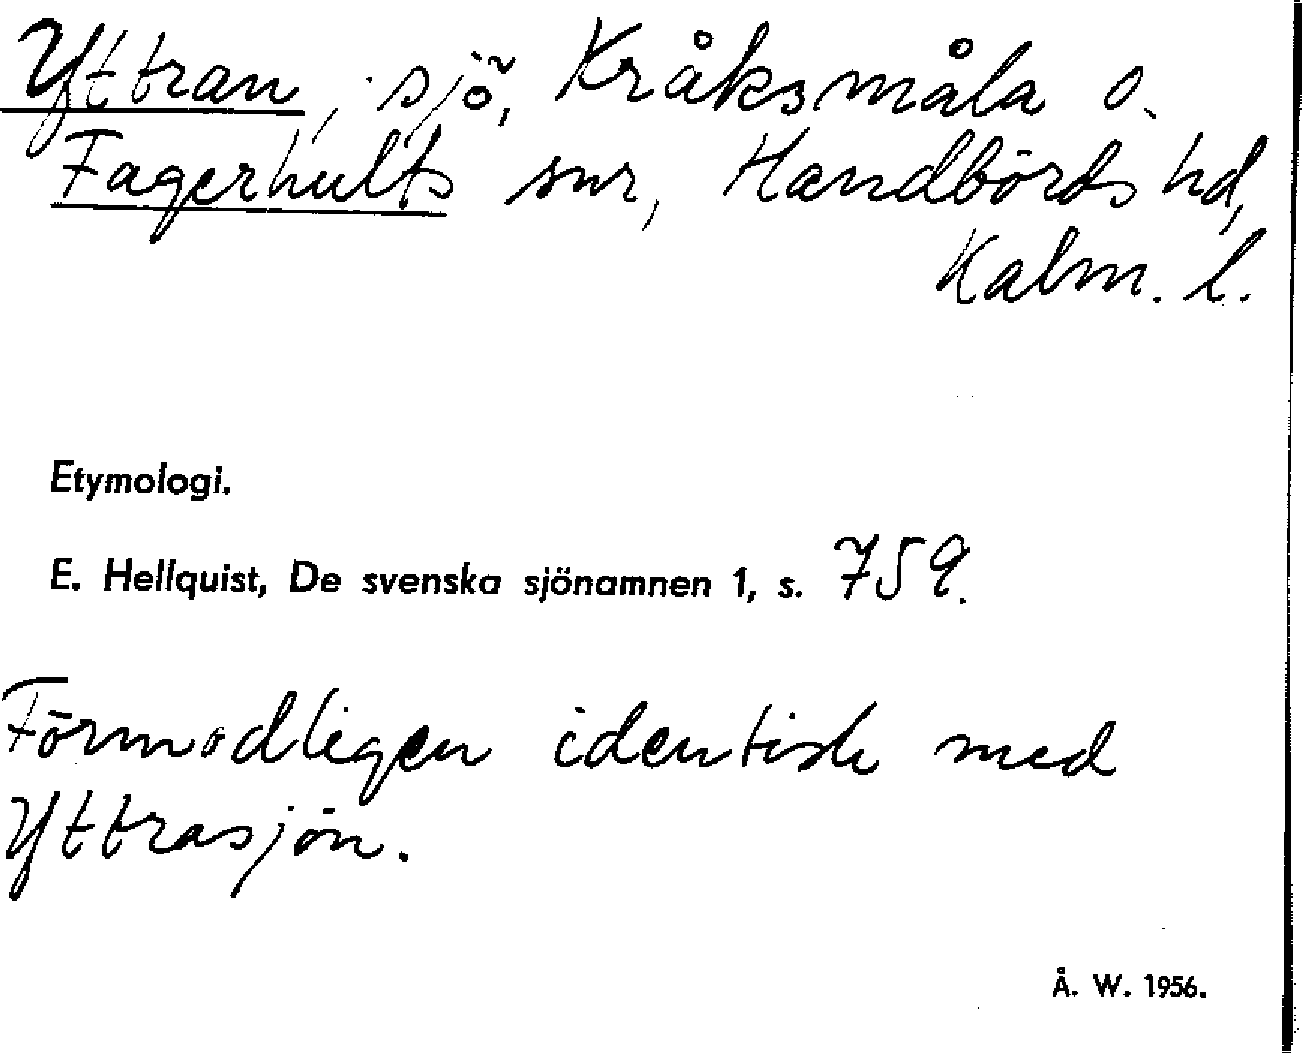 Yttran, sjö, Kråksmåla o.
Fagerhults snr, Handbörds hd,
Kalm. l.
Etymologi.
E. Hellquist, De svenska sjönamnen 1, s. 759.
Förmodligen identisk med
Yttrasjön.
Å. W. 1956.